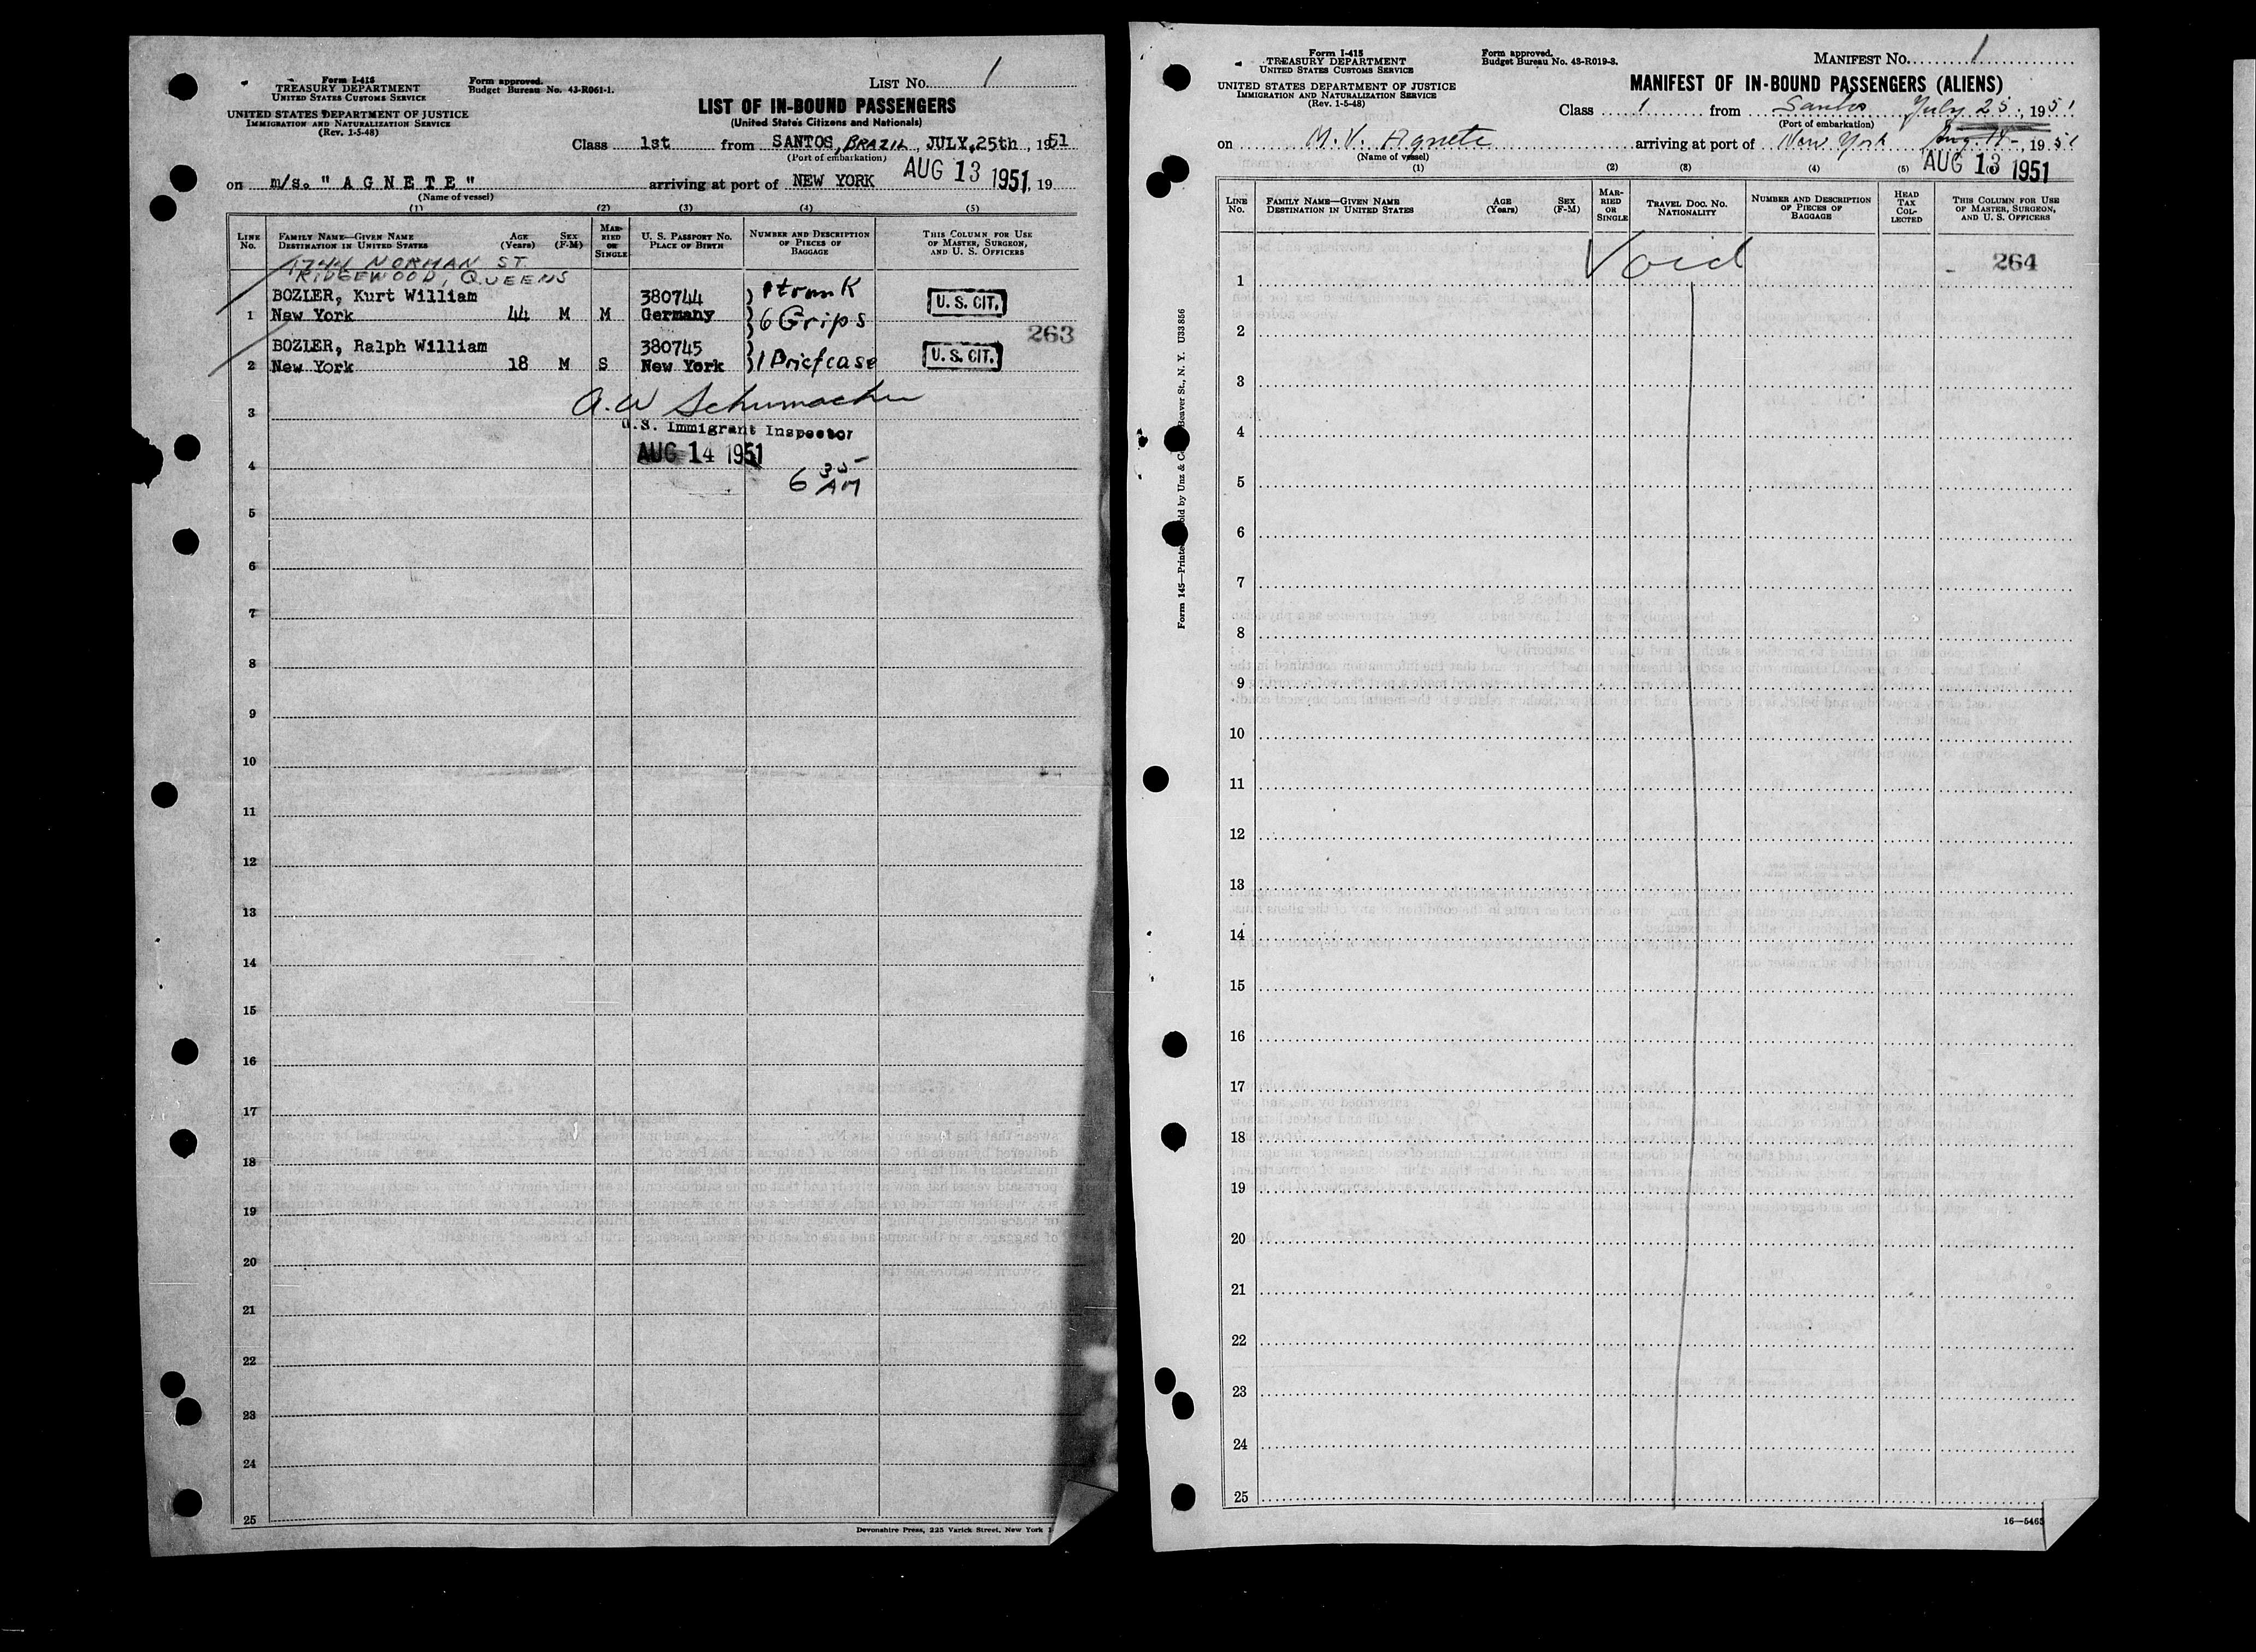 Form I-416
TREASURY DEPARTMENT
UNITED STATES CUSTOMS SERVICE
UNITED STATES DEPARTMENT OF JUSTICE
IMMIGRATION AND NATURALIZATION SERVICE
(Rev. 1-5-48)
Form approved.
Budget Bureau No. 43-R061-1.
LIST No. 1
LIST OF IN-BOUND PASSENGERS
(United States Citizens and Nationals)
Class 1st from SANTOS, BRAZIL, JULY, 25th, 1951
(Port of embarkation)
on m/s. "AGNETE" arriving at port of NEW YORK AUG 13 1951, 19
(Name of vessel)
(1) (2) (3) (4) (5)
LINE No. FAMILY NAME—GIVEN NAME DESTINATION IN UNITED STATES AGE (Years) SEX (F-M) MARRIED OR SINGLE U. S. PASSPORT NO. PLACE OF BIRTH NUMBER AND DESCRIPTION OF PIECES OF BAGGAGE THIS COLUMN FOR USE OF MASTER, SURGEON, AND U. S. OFFICERS
1744 NORMAN ST
RIDGEWOOD, QUEENS
BOZLER, Kurt William 380744 1 trunk U. S. CIT.
1 New York 44 M M Germany 6 Grips
263
BOZLER, Ralph William 380745
2 New York 18 M S New York 1 Briefcase U. S. CIT.
A.W Schumacher
3
U.S. Immigrant Inspector
AUG 14 1951
4
6 35 AM
5
6
7
8
9
10
11
12
13
14
15
16
17
18
19
20
21
22
23
24
25
Devonshire Press, 225 Varick Street, New York
Form I-415
TREASURY DEPARTMENT
UNITED STATES CUSTOMS SERVICE
UNITED STATES DEPARTMENT OF JUSTICE
IMMIGRATION AND NATURALIZATION SERVICE
(Rev. 1-5-48)
Form approved.
Budget Bureau No. 43-R019-3.
MANIFEST NO. 1
MANIFEST OF IN-BOUND PASSENGERS (ALIENS)
Class 1 from Santos July 25, 1951
(Port of embarkation)
on M. V. Agnete arriving at port of New York Aug. 14 - 1951
(Name of vessel)
AUG 13 1951
(1) (2) (3) (4) (5)
LINE No. FAMILY NAME—GIVEN NAME DESTINATION IN UNITED STATES AGE (Years) SEX (F-M) MARRIED OR SINGLE TRAVEL DOC. NO. NATIONALITY NUMBER AND DESCRIPTION OF PIECES OF BAGGAGE HEAD TAX COLLECTED THIS COLUMN FOR USE OF MASTER, SURGEON, AND U. S. OFFICERS
Void
264
1
2
3
4
5
6
7
8
9
10
11
12
13
14
15
16
17
18
19
20
21
22
23
24
25
16—5463
Form 145—Printed Sold by Unz & Co. Beaver St., N. Y. U33856